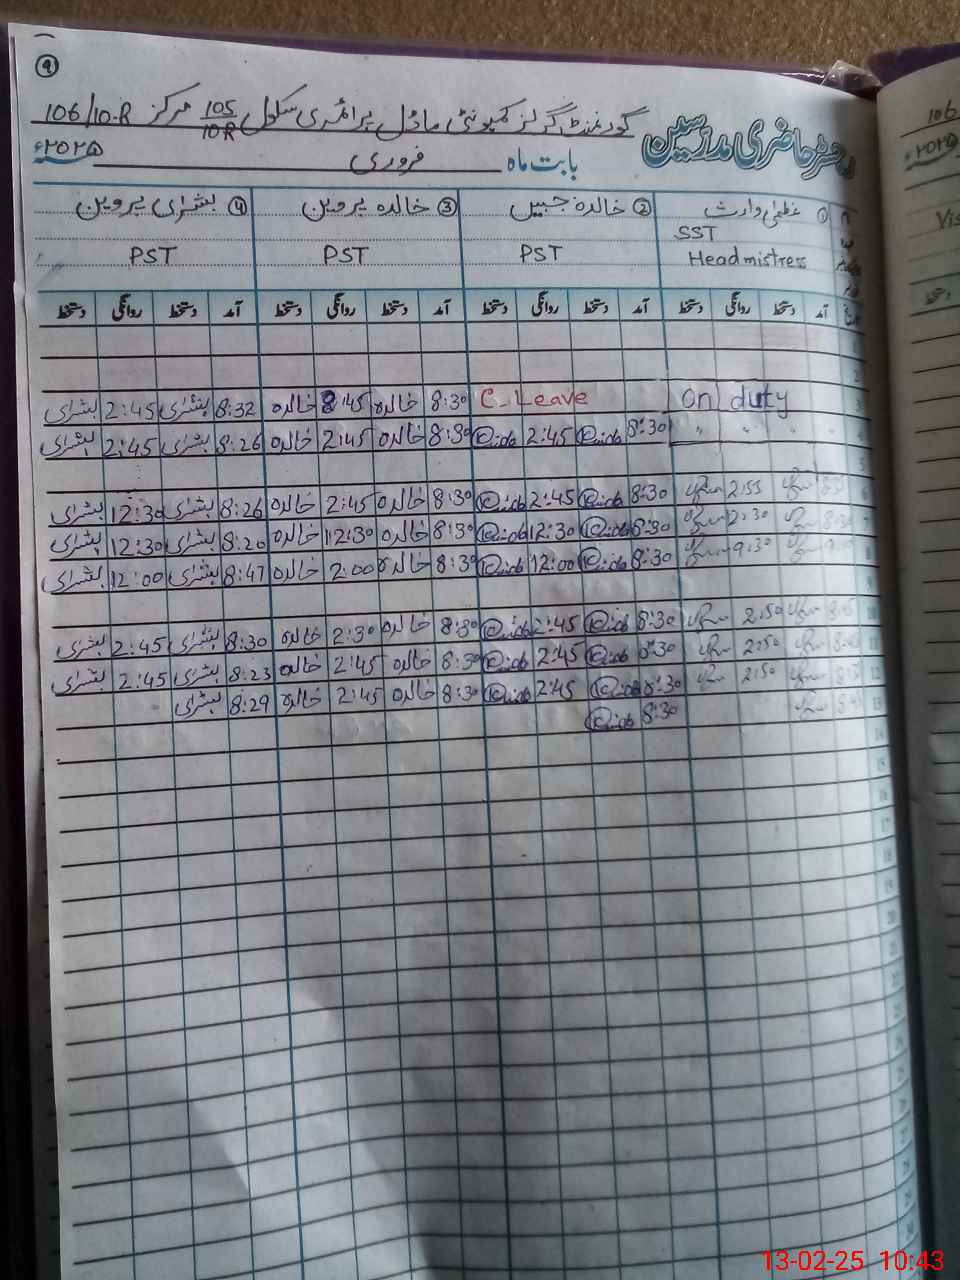 ۹
رجسٹر حاضری مدرسین گورنمنٹ گرلز کمیونٹی ماڈل پرائمری سکول 105/10R مرکز 106/10-R
بابت ماہ فروری ۲۰۲۵ء
① عظمیٰ وارث ② خالدہ جبیں ③ خالدہ پروین ④ بشریٰ پروین
SST
Headmistress PST PST PST
آمد دستخط روانگی دستخط آمد دستخط روانگی دستخط آمد دستخط روانگی دستخط آمد دستخط روانگی دستخط
2
3 on duty C-Leave 8:30 خالدہ 2:45 خالدہ 8:32 بشریٰ 2:45 بشریٰ
4 " " " " 8:30 2:45 8:30 خالدہ 2:45 خالدہ 8:26 بشریٰ 2:45 بشریٰ
5
6 2:55 8:30 2:45 8:30 خالدہ 2:45 خالدہ 8:26 بشریٰ 12:30 بشریٰ
7 8:30 12:30 8:30 خالدہ 12:30 خالدہ 8:20 بشریٰ 12:30 بشریٰ
8 9:30 8:30 12:00 8:30 خالدہ 2:00 خالدہ 8:47 بشریٰ 12:00 بشریٰ
9
10 2:50 8:30 2:45 8:30 خالدہ 2:30 خالدہ 8:30 بشریٰ 2:45 بشریٰ
11 2:50 8:30 2:45 8:30 خالدہ 2:45 خالدہ 8:23 بشریٰ 2:45 بشریٰ
12 2:50 8:30 2:45 8:30 خالدہ 2:45 خالدہ 8:29 بشریٰ
13 8:30
14
15
16
17
18
19
20
21
22
23
24
25
26
27
28
29
30
106
۲۰۲۵
Vis
دستخط
13-02-25 10:43